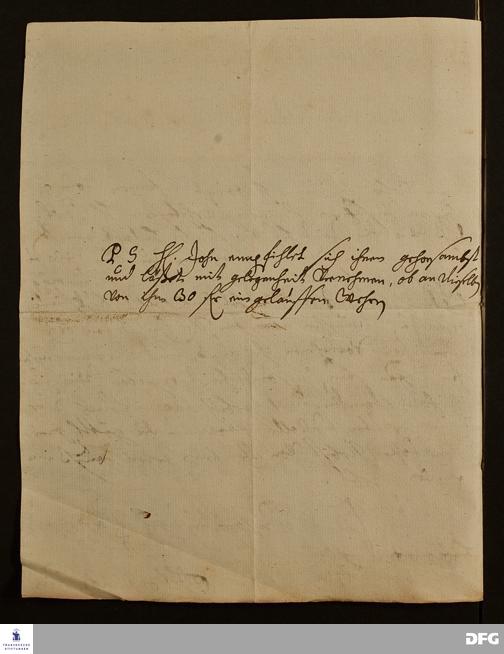 P S H. John empfiehlet sich ihnen gehorsambst
und läßet mit gelegenheit Vernehmen, ob an
von ihm 30 fl eingelauffen Wehren
FRANCKESCHE
STIFTUNGEN
DFG